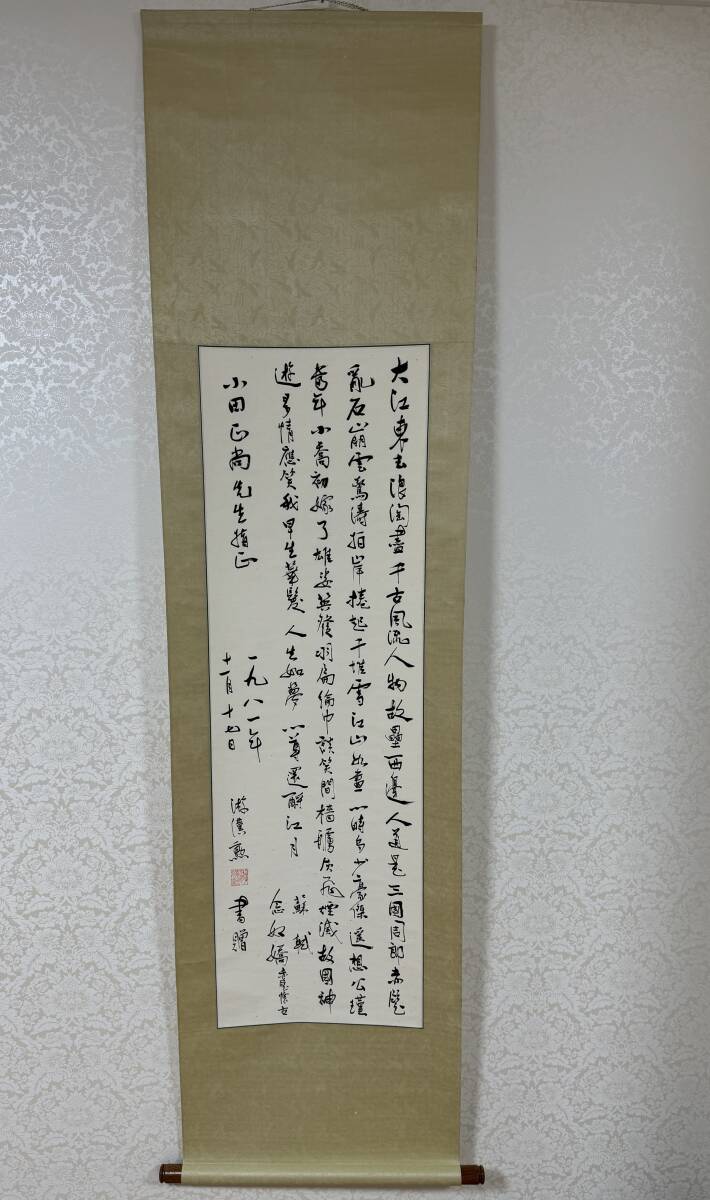 大江東去浪淘盡千古風流人物故壘西邊人道是三國周郎赤壁
亂石崩雲驚濤拍岸捲起千堆雪江山如畫一時多少豪傑遙想公瑾
當年小喬初嫁了雄姿英發羽扇綸巾談笑間檣艣灰飛煙滅故國神
遊多情應笑我早生華髮人生如夢一尊還酹江月
蘇軾
念奴嬌赤壁懷古
小田正尚先生指正
一九八一年
十一月十七日
游僕勲
書贈